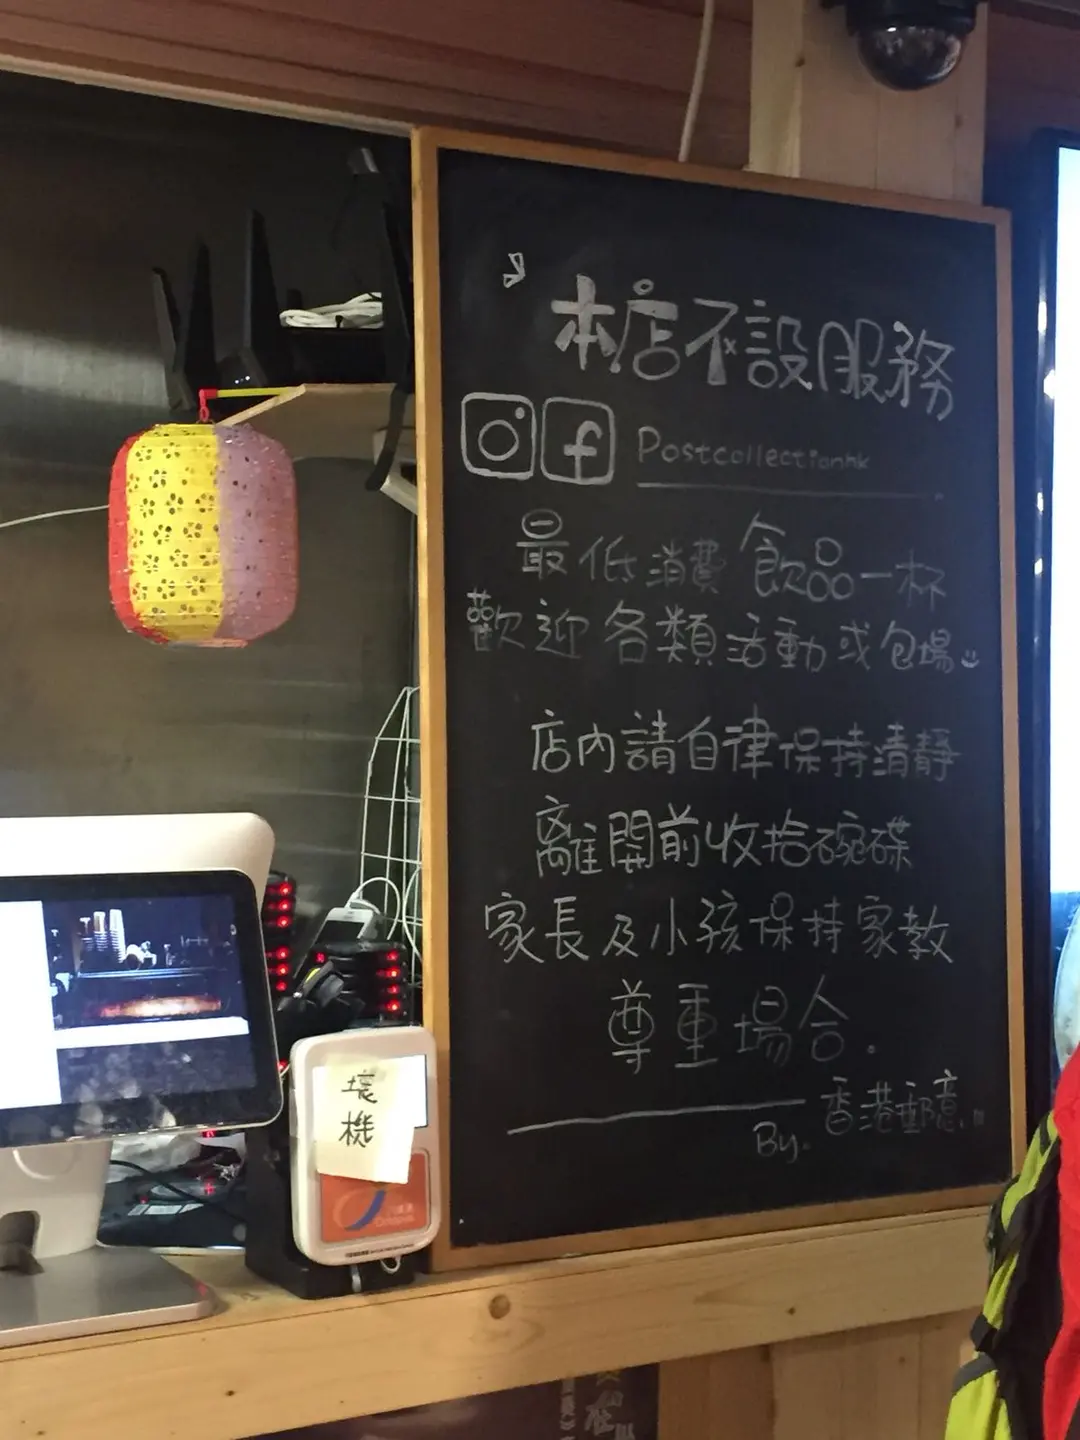 本店不設服務
Postcollectionhk
最低消費 飲品一杯
歡迎各類活動或包場
店內請自律保持清靜
離開前收拾碗碟
家長及小孩保持家教
尊重場合.
By. 香港郵意
壞機
Octopus